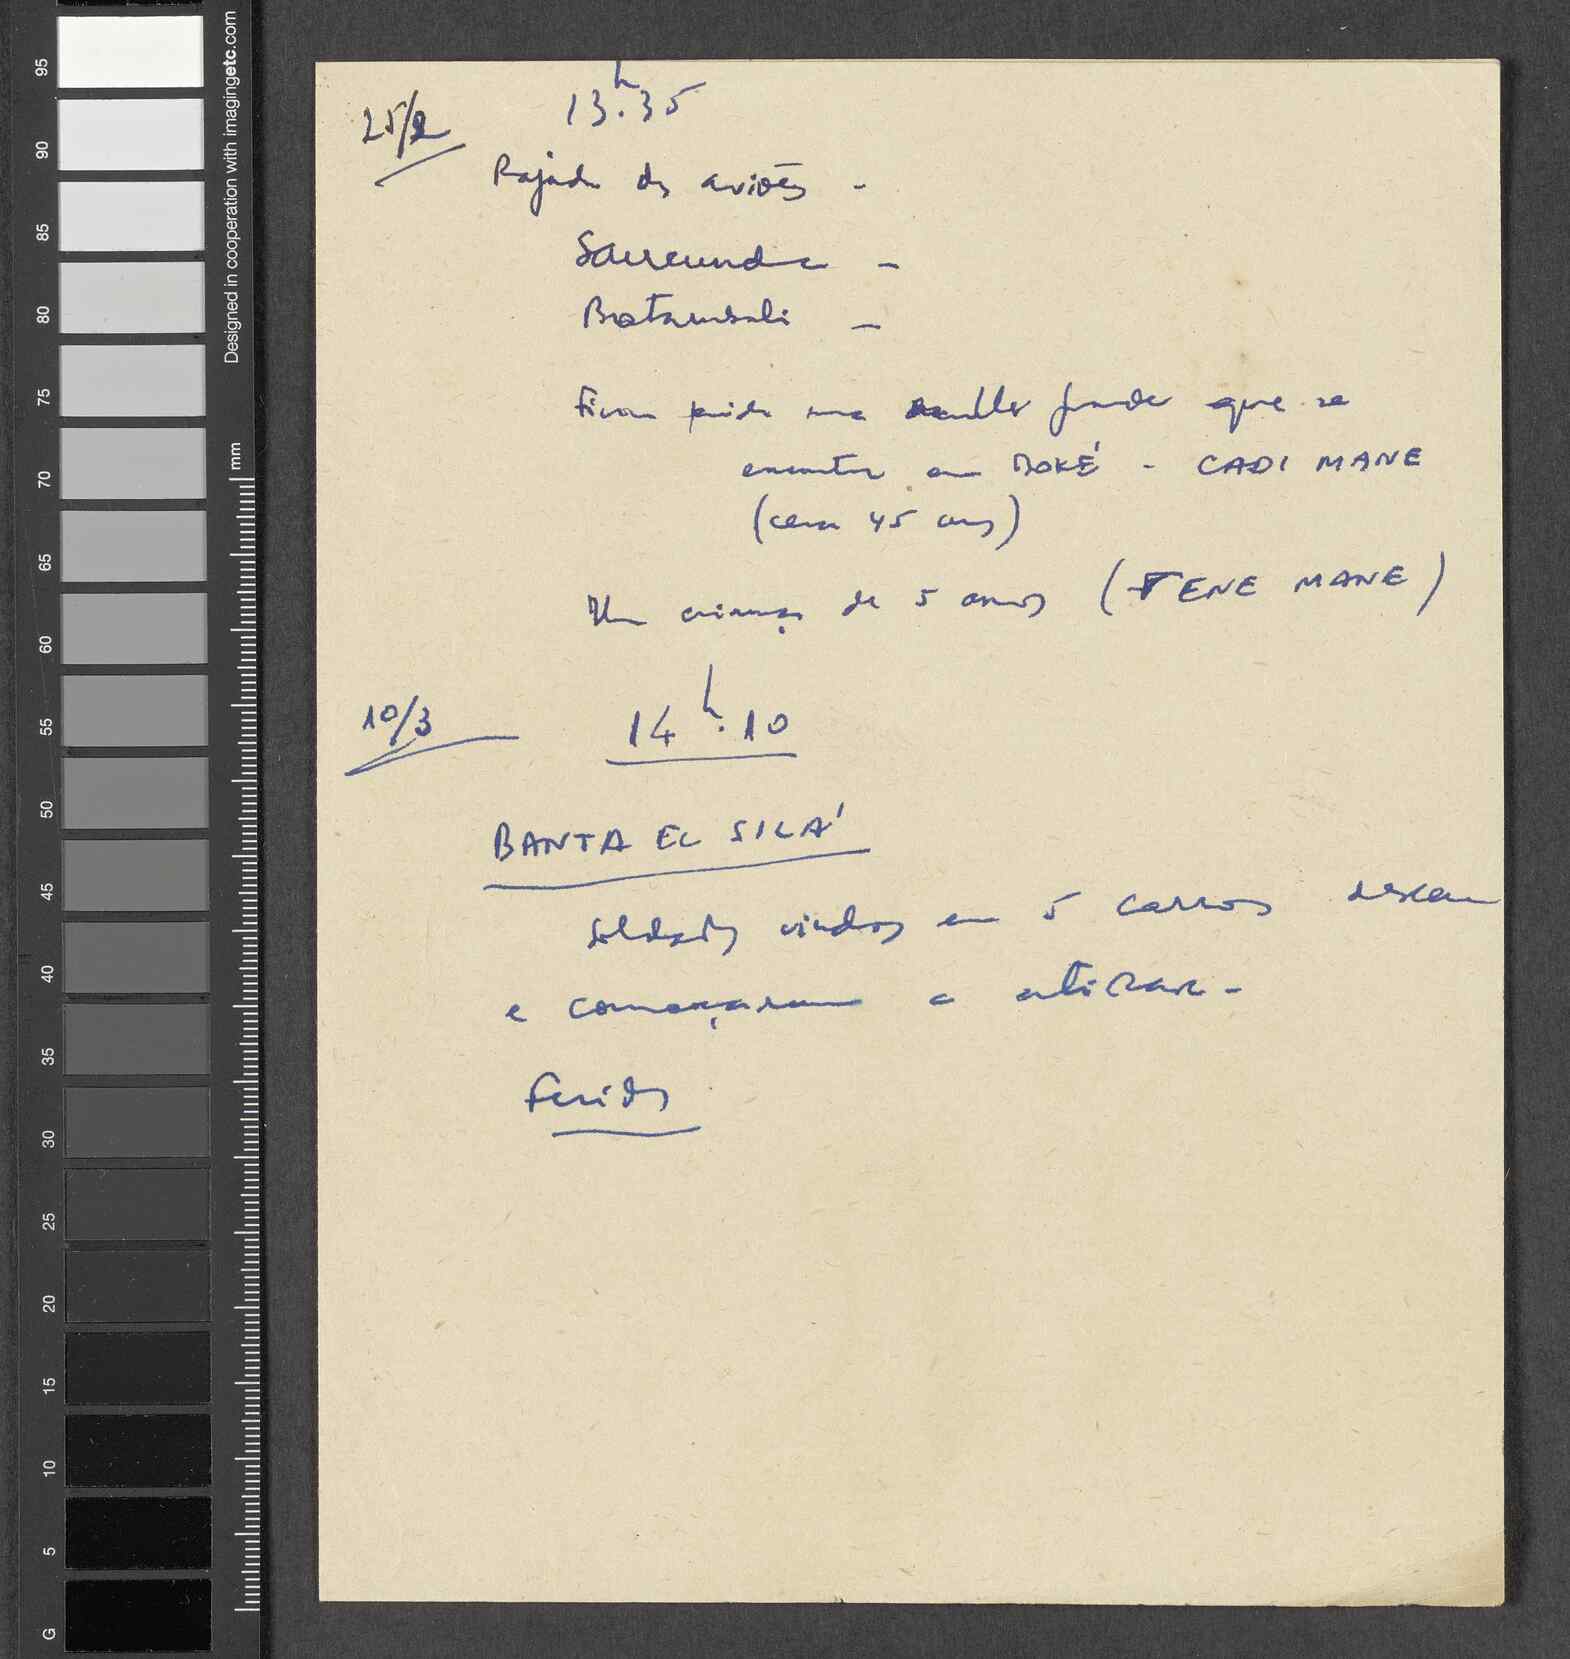 95
90
85
80
75
70
65
60
55
50
45
40
35
30
25
20
15
10
5
G
Designed in cooperation with imagingetc.com
mm
25/2 13h.35
Rajada dos aviões -
Saucunda -
Botambali -
Ficou ferida uma mulher grande que se
encontra em BOKÉ - CADI MANE
(cerca 45 anos)
Um criança de 5 anos (TENE MANE)
10/3 14h.10
BANTA EL SILÁ
Soldados vindos em 5 carros desceram
e começaram a atirar -
Feridos